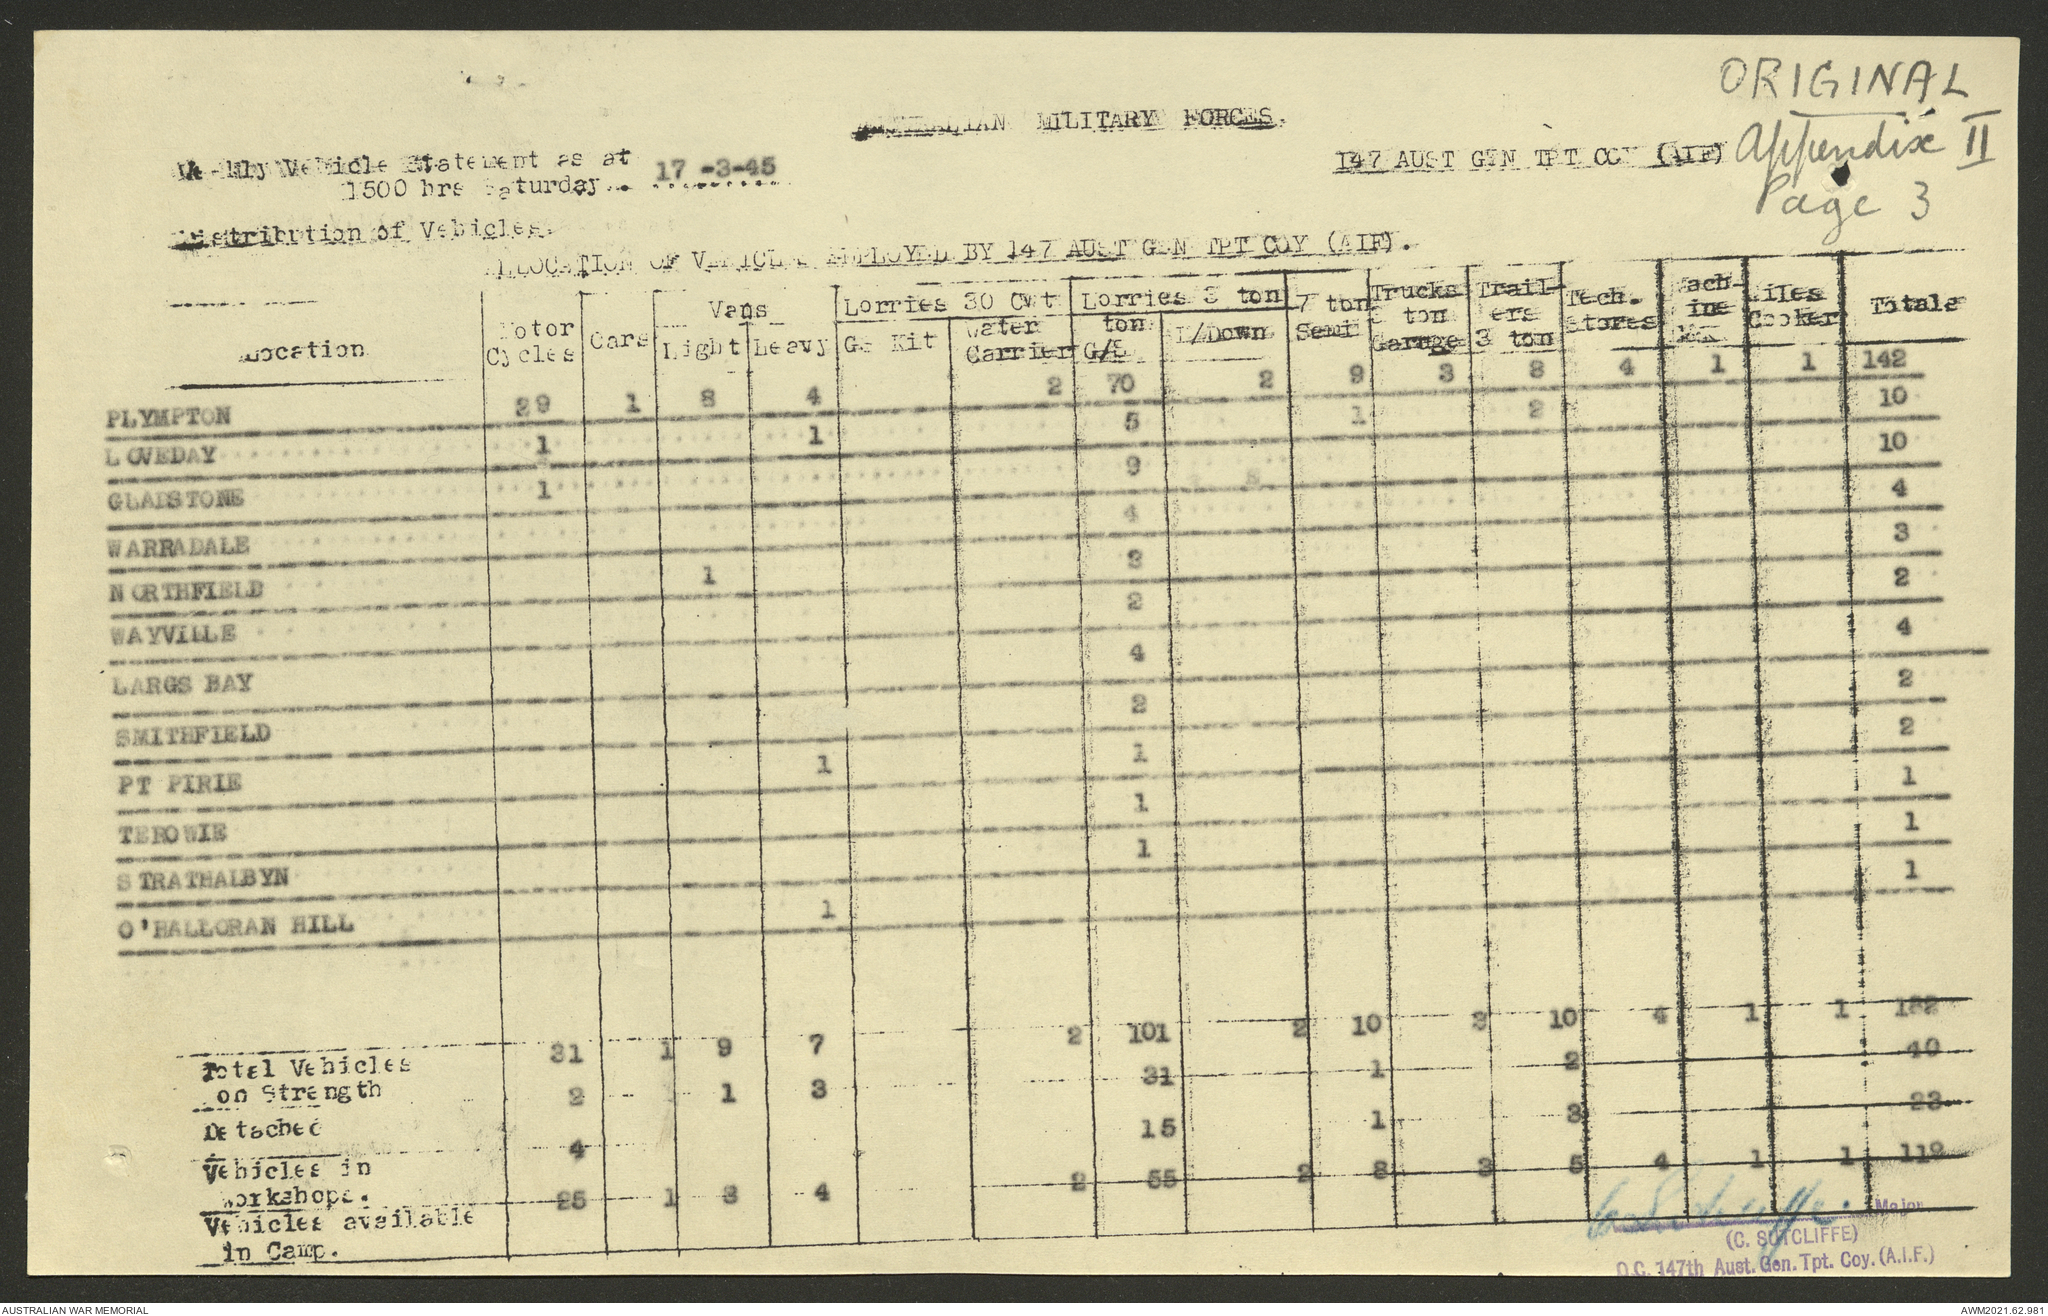 ORIGINAL
Appendix II
Page 3
AUSTRALIAN MILITARY FORCES.
Weekly Vehicle Statement as at
1500 hrs Saturday... 17 -3-45
147 AUST GEN TPT COY (AIF)
Distribution of Vehicles.
ALLOCATION OF VEHICLE EMPLOYED BY 147 AUST GEN TPT COY (AIF).
Location Motor Cycles Cars Vans Light Heavy Lorries 30 Cwt GS Kit Water Carrier Lorries 3 ton ton G/S 7 ton Semi Trucks ton Garage Trail-ers 3 ton Tech. Stores Mach-ine Wiles Cooker Totals
PLYMPTON 29 1 8 4 2 70 2 9 3 8 4 1 1 142
LOVEDAY 1 1 5 1 2 10
GLADSTONE 1 9 10
WARRADALE 4 4
NORTHFIELD 1 3
WAYVILLE 2 2
LARGS BAY 4 4
SMITHFIELD 2 2
PT PIRIE 1 1 2
TEROWIE 1 1
STRATHALBYN 1 1
O'HALLORAN HILL 1 1
Total Vehicles
on Strength 31 1 9 7 2 101 2 10 3 10 4 1 1 182
Detached 2 1 3 31 1 2 40
Vehicles in
workshops. 4 15 1 3 23
Vehicles available
in Camp. 25 1 8 4 2 55 2 8 3 5 4 1 1
C Sutcliffe. Major
(C. SUTCLIFFE)
O.C. 147th Aust. Gen. Tpt. Coy. (A.I.F.)
AUSTRALIAN WAR MEMORIAL
AWM2021.62.981